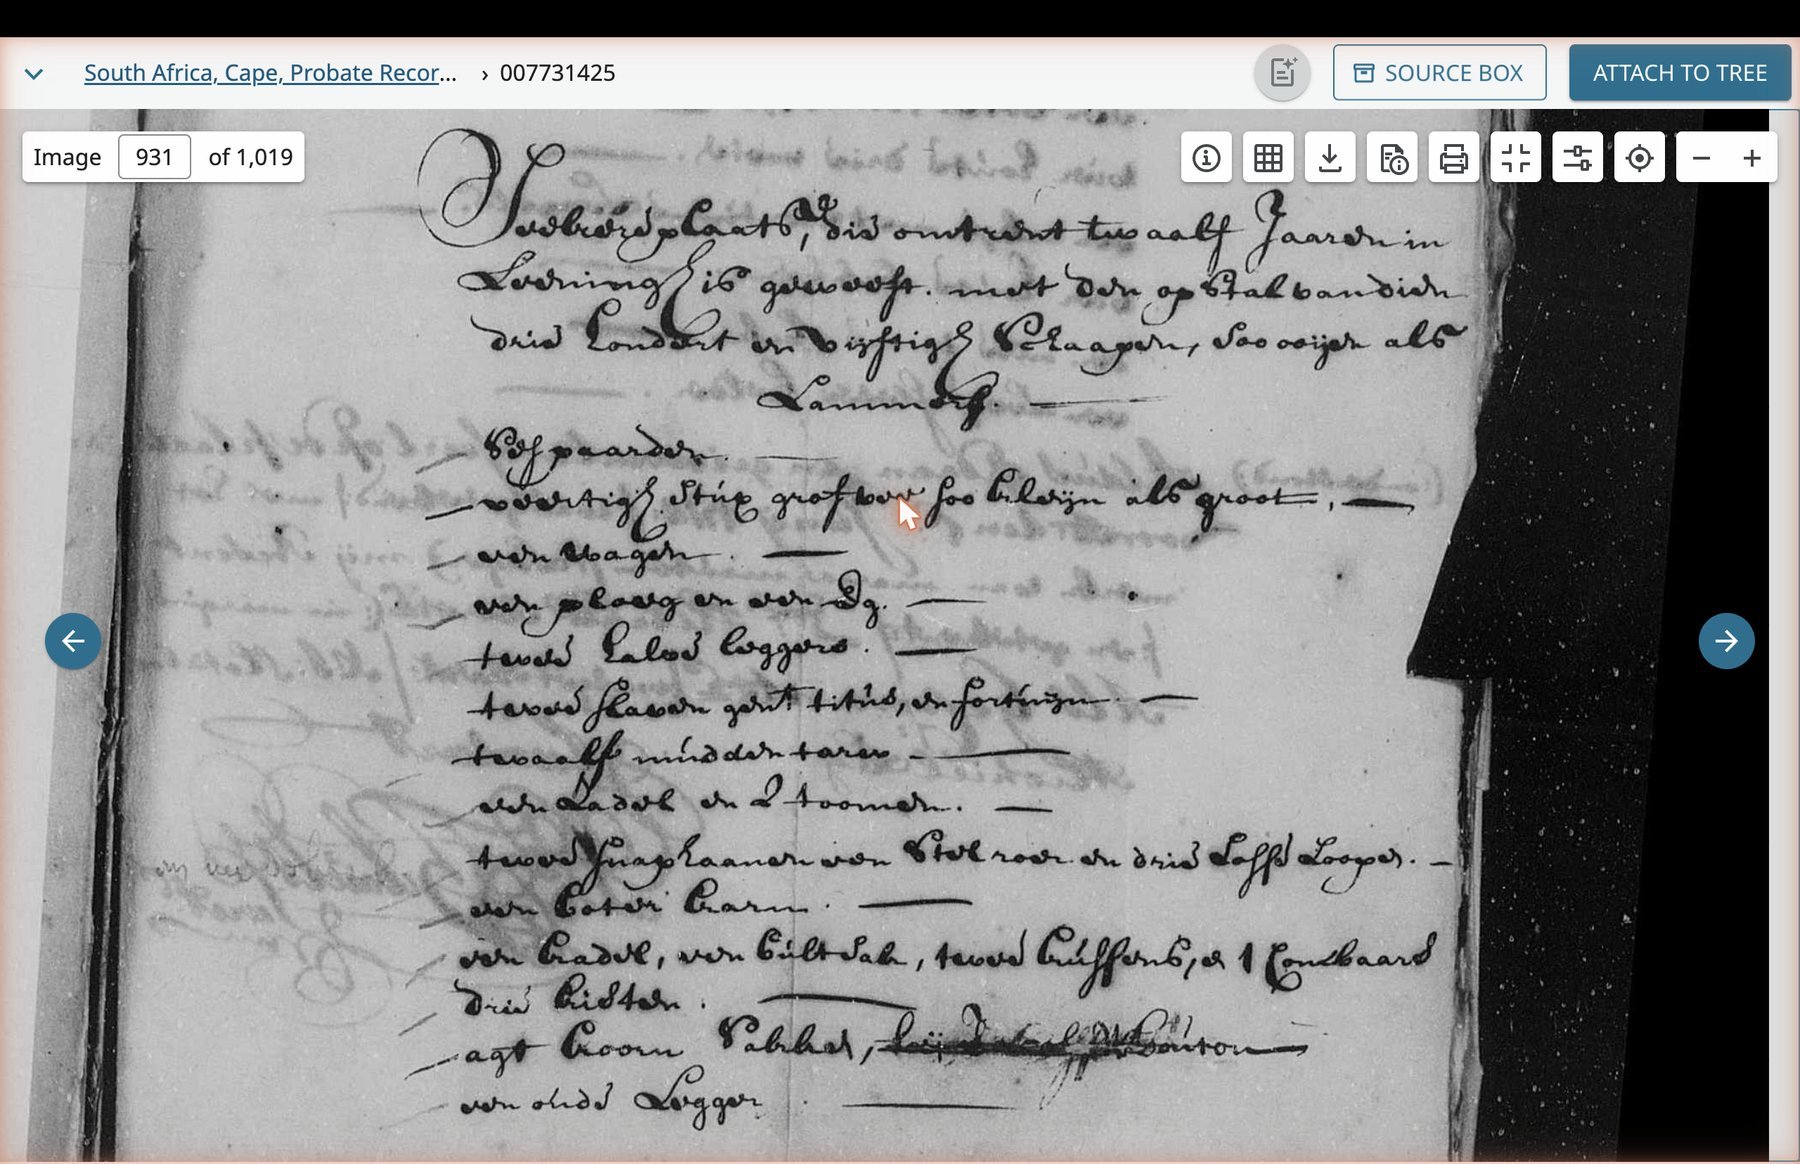 South Africa, Cape, Probate Recor... › 007731425
SOURCE BOX
ATTACH TO TREE
Image 931 of 1,019
plaats, die omtrent twaalf Jaaren in
Leeningh is geweest. met den opstal van dien
drie hondert en vijftigh Schaapen, soo ooijen als
Lammers.
Ses paarden.
veertigh stux grof vee soo kleijn als groot,
een wagen.
een ploeg en een Eg.
twee halve leggers.
twee slaven gen.t titus, en fortuijn
twaalf mudden tarw
een Zadel en 2 toomen.
twee snaphaanen een Stel roer en drie Losse Loopen.
een boter karn.
een kadel, een bultsak, twee kussens, e 1 Combaars
drie kisten.
agt koorn Sakken,
een oude Legger